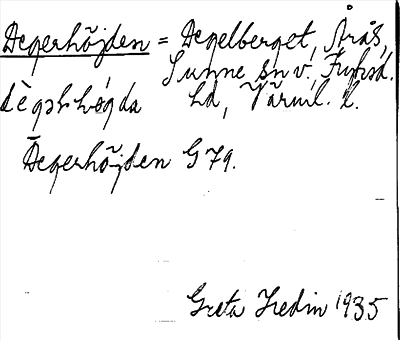 Degerhöjden = Degelberget, Årås,
Sunne sn v., Fryksd.
dὲgərhø̀gda hd, Värml. l.
Degerhöjden G 79.
Greta Hedin 1935